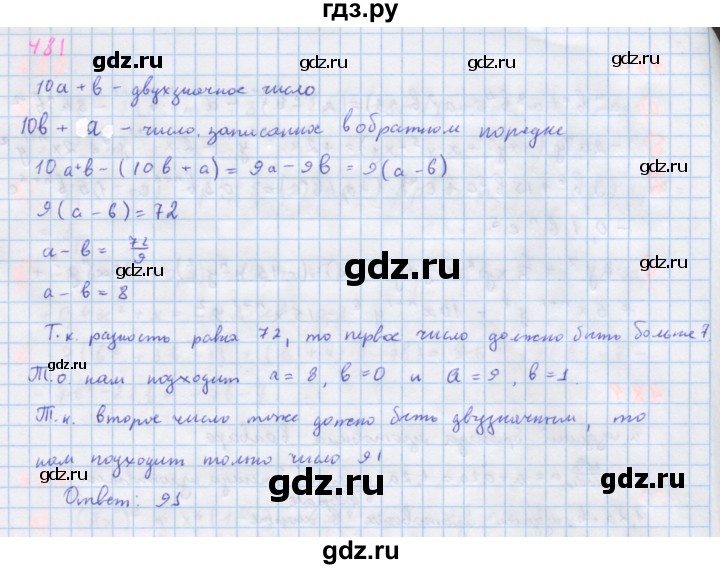 гдз.ру
481
10a + в - двухзначное число
10в + a - число, записанное в обратном порядке
10a+в - (10в + a) = 9a - 9в = 9(a - в)
9(a - в) = 72
a - в = 72/9
a - в = 8
Т.к. разность равна 72, то первое число должно быть больше 7.
Т.О. нам подходит a = 8, в = 0 и a = 9, в = 1.
Т.к. второе число тоже должно быть двузначным, то
нам подходит только число 91
Ответ: 91
gdz.ru gdz.ru
gdz.ru gdz.ru gdz.ru
gdz.ru gdz.ru
gdz.ru gdz.ru gdz.ru
gdz.ru gdz.ru
gdz.ru gdz.ru gdz.ru
gdz.ru gdz.ru
gdz.ru gdz.ru gdz.ru
гдз.ру